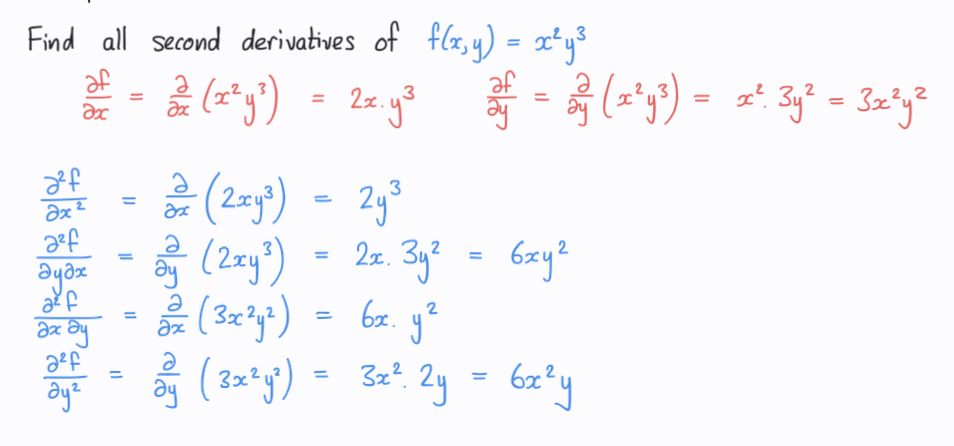 Find all second derivatives of f(x,y) = x²y³
∂f/∂x = ∂/∂x (x²y³) = 2x.y³ ∂f/∂y = ∂/∂y (x²y³) = x². 3y² = 3x²y²
∂²f/∂x² = ∂/∂x (2xy³) = 2y³
∂²f/∂y∂x = ∂/∂y (2xy³) = 2x. 3y² = 6xy²
∂²f/∂x∂y = ∂/∂x (3x²y²) = 6x. y²
∂²f/∂y² = ∂/∂y (3x²y²) = 3x². 2y = 6x²y